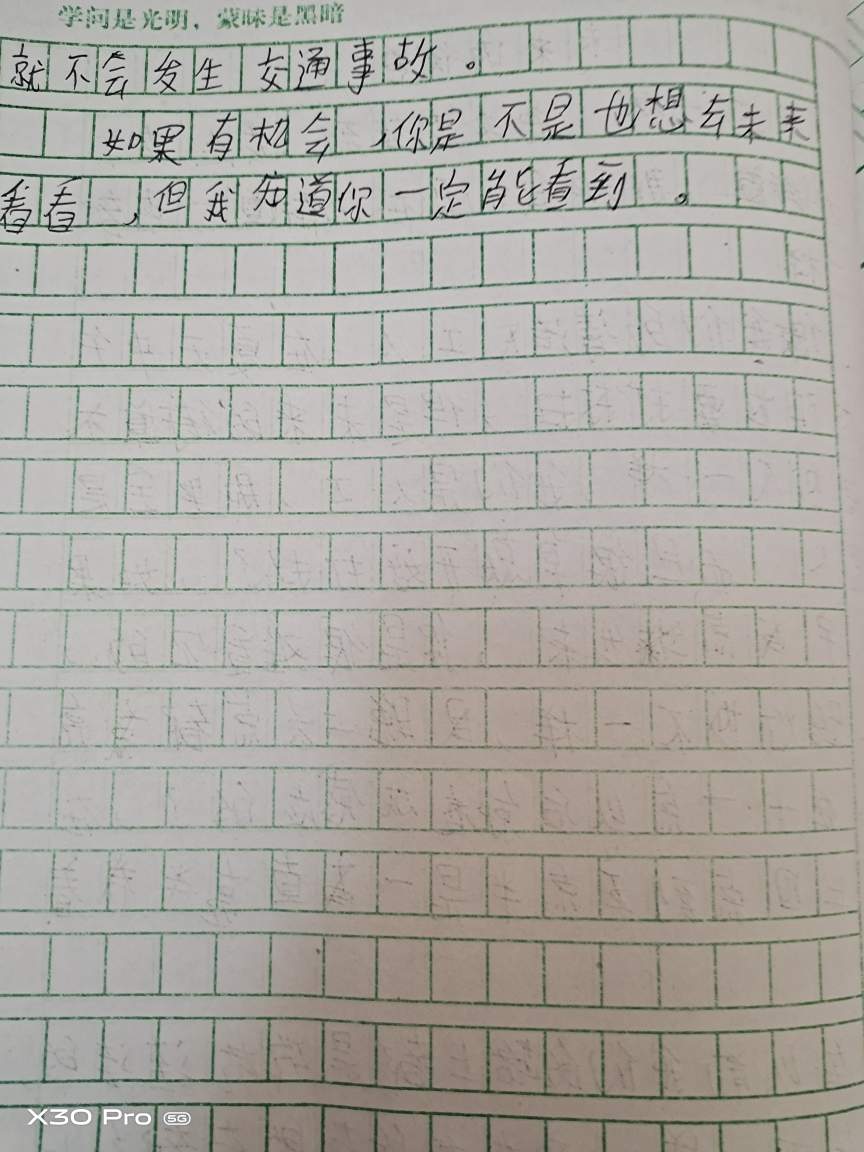 学问是光明，蒙昧是黑暗
就不会发生交通事故。
如果有机会，你是不是也想去未来
看看，但我知道你一定能看到。
X30 Pro 5G